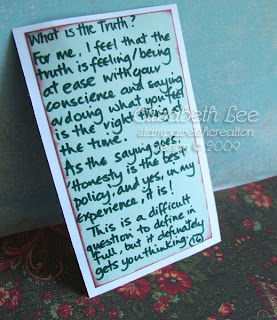 What is the Truth?
For me, I feel that the
truth is feeling/being
at ease with your
conscience and saying
/doing what you feel
is the right thing at
the time.
As the saying goes,
'Honesty is the best
policy, and yes, in my
experience, it is!
This is a difficult
question to define in
full, but it definately
gets you thinking. (16)
Elizabeth Lee
design © 2009